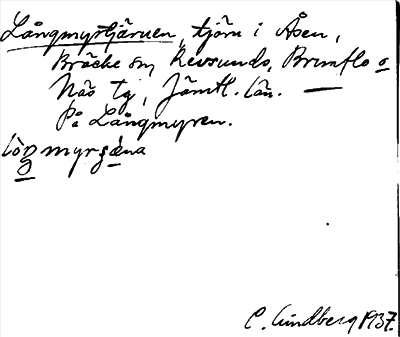 Långmyrtjärnen, tjärn i Åsen,
Bräcke sn, Revsunds, Brunflo o
Näs tg, Jämtl. län. —
På Långmyren.
C. Lindberg 1937.